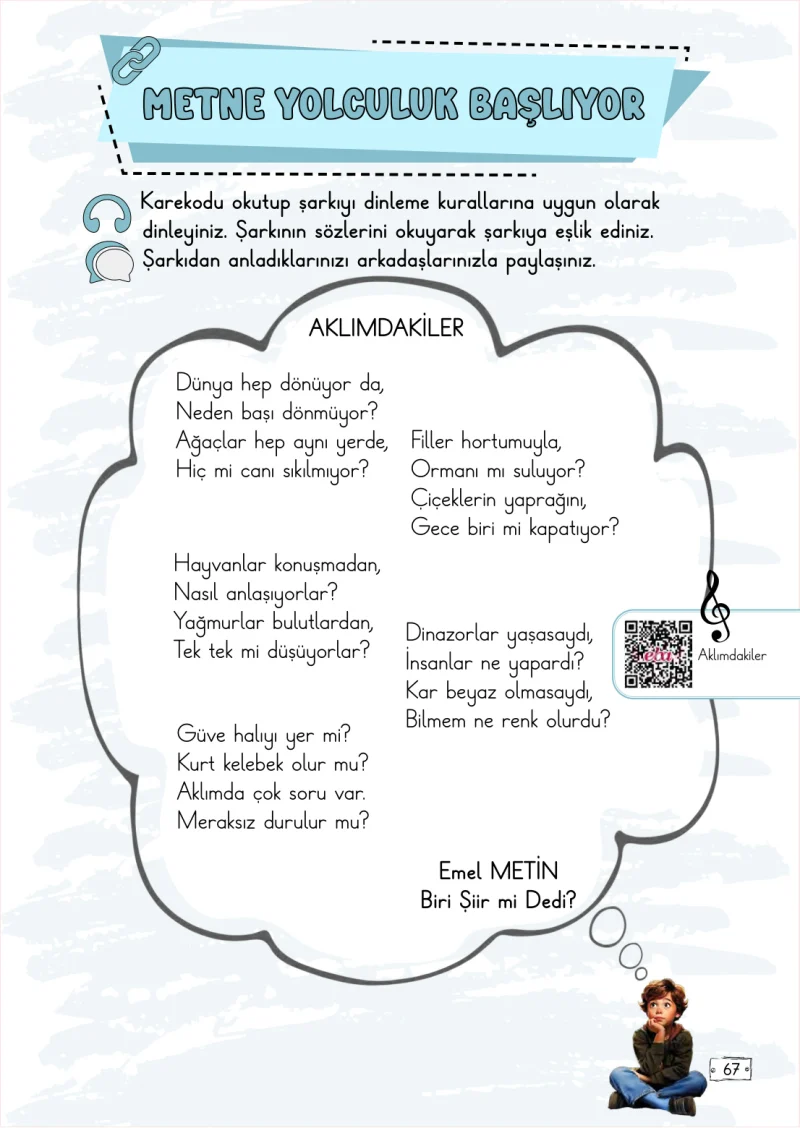 METNE YOLCULUK BAŞLIYOR
Karekodu okutup şarkıyı dinleme kurallarına uygun olarak
dinleyiniz. Şarkının sözlerini okuyarak şarkıya eşlik ediniz.
Şarkıdan anladıklarınızı arkadaşlarınızla paylaşınız.
AKLIMDAKİLER
Dünya hep dönüyor da,
Neden başı dönmüyor?
Ağaçlar hep aynı yerde,
Hiç mi canı sıkılmıyor?
Filler hortumuyla,
Ormanı mı suluyor?
Çiçeklerin yaprağını,
Gece biri mi kapatıyor?
Hayvanlar konuşmadan,
Nasıl anlaşıyorlar?
Yağmurlar bulutlardan,
Tek tek mi düşüyorlar?
Dinazorlar yaşasaydı,
İnsanlar ne yapardı?
Kar beyaz olmasaydı,
Bilmem ne renk olurdu?
Güve halıyı yer mi?
Kurt kelebek olur mu?
Aklımda çok soru var.
Meraksız durulur mu?
Emel METİN
Biri Şiir mi Dedi?
eba
Aklımdakiler
67